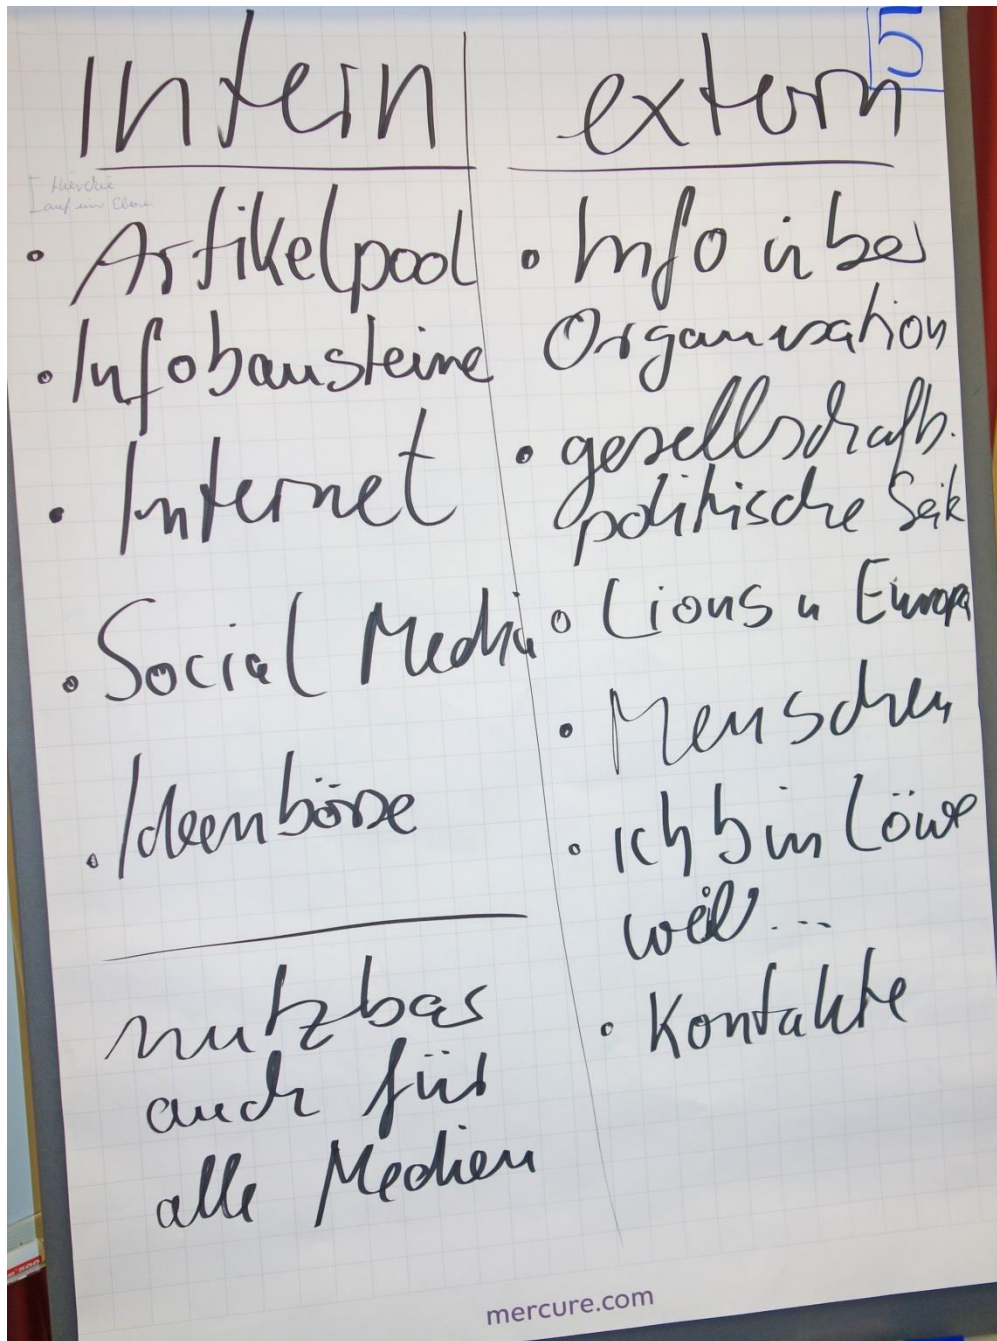 5
Intern
• Artikelpool
• Infobausteine
• Internet
• Social Media
• Ideenbörse
nutzbar
auch für
alle Medien
extern
• Info über
Organisation
• gesellschafts.
politische Seite
• Lions u Europa
• Menschen
• ich bin Löwe
weil...
• Kontakte
mercure.com